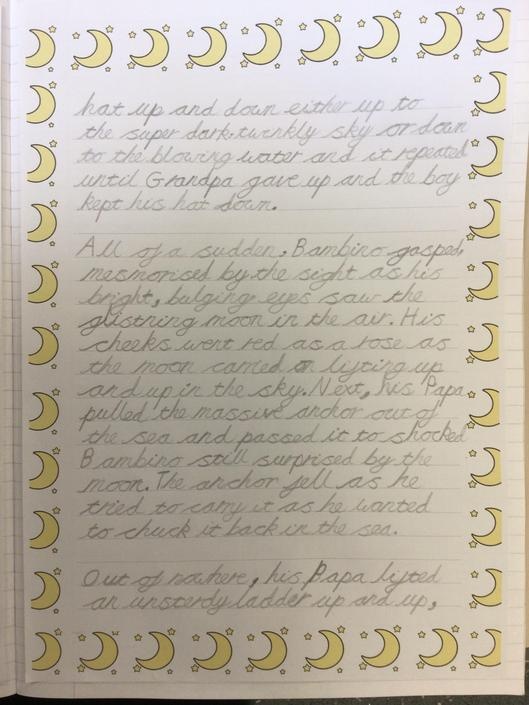 hat up and down either up to
the super dark, twinkly sky or down
to the blowing water and it repeated
until Grandpa gave up and the boy
kept his hat down.
All of a sudden, Bambino gasped,
mesmorised by the sight as his
bright, bulging eyes saw the
glistning moon in the air. His
cheeks went red as a rose as
the moon carried on lifting up
and up in the sky. Next, his Papa
pulled the massive anchor out of
the sea and passed it to shocked
Bambino still surprised by the
moon. The anchor fell as he
tried to carry it as he wanted
to chuck it back in the sea.
Out of nowhere, his Papa lifted
an unsterdy ladder up and up,